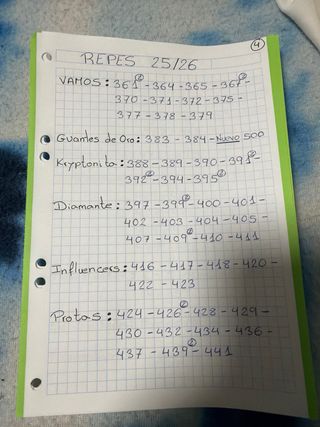 4
REPES 25/26
VAMOS: 361② - 364 - 365 - 367② -
370 - 371 - 372 - 375 -
377 - 378 - 379
Guantes de Oro: 383 - 384 - NUEVO 500
Kryptonita: 388 - 389 - 390 - 391② -
392② - 394 - 395②
Diamante: 397 - 399② - 400 - 401 -
402 - 403 - 404 - 405 -
407 - 409② - 410 - 411
Influencers: 416 - 417 - 418 - 420 -
422 - 423
Protas: 424 - 426② - 428 - 429 -
430 - 432 - 434 - 436 -
437 - 439② - 441